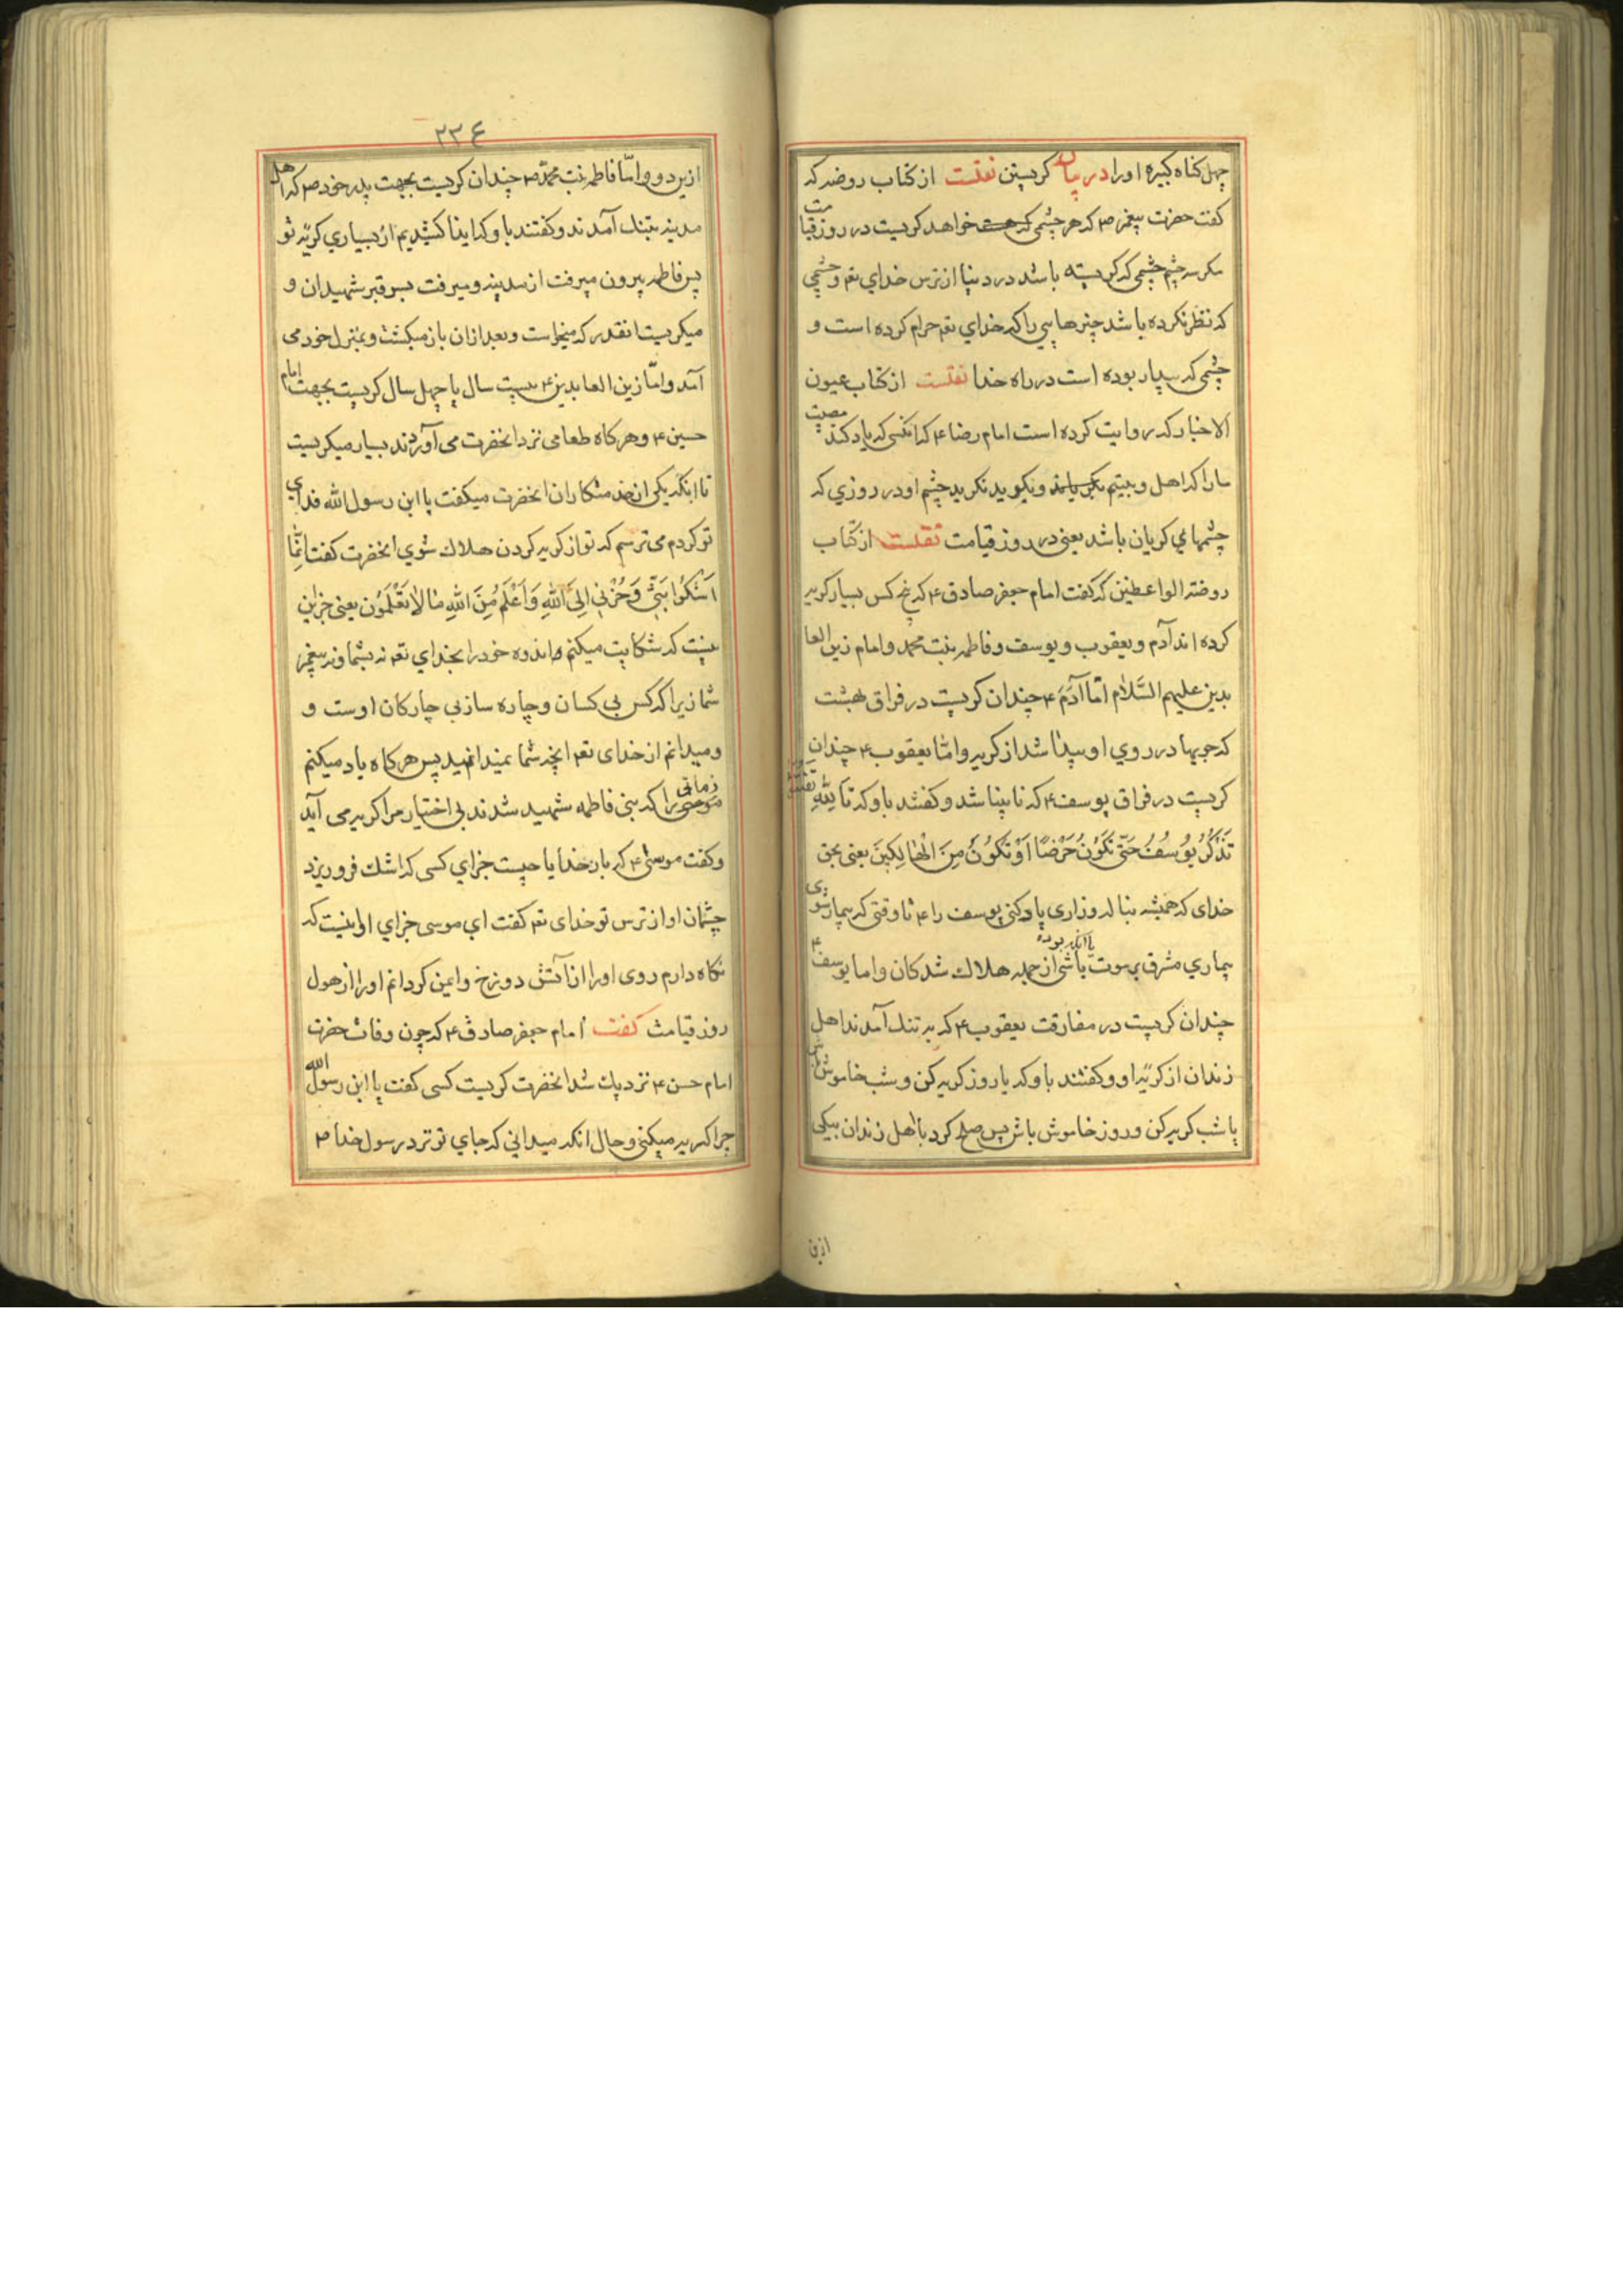 چهل کناه کبیره اورا در بیان کریستن نقلست از کتاب روضه که
کفت حضرت پیغمبر ص که هر چشمی که هست خواهد کریست در روز قیامت
مکر سه چشم چشمی که کریسته باشد در دنیا از ترس خدای تعـ و چشمی
که نظر نکرده باشد چیزهایی را که خدای تعـ حرام کرده است و
چشمی که بیدار بوده است در راه خدا نقلست از کتاب عیون
الاخبار که روایت کرده است امام رضا ۴ که انکسی که یاد کند مصیبت
مارا که اهل و بیتیم بکریاند و بکوید نکرید چشم او در روزي که
چشمهاي کریان باشد یعنی در روز قیامت نقلست از کتاب
روضة الواعظین که کفت امام جعفر صادق ۴ که پنج کس بسیار کریه
کرده اند آدم و یعقوب و یوسف و فاطمه بنت محمد و امام زین العا
بدین علیهم السَّلام امّا آدَمَ ۴ چندان کریست در فراق بهشت
که جویها در روي او پیدا شد از کریه و امّا یعقوب ۴ چندان
کریست در فراق یوسف ۴ که نابینا شد و کفتند باو که تَا للّٰهِ تفتؤ
تَذْكُرُ يُوسُفُ حَتّٰى تَكُونَ حَرَضًا اَوْ تَكُونَ مِنَ الْهٰالِكِينَ یعنی بحق
خدای که همیشه بناله وزاری یاد کنی یوسف را ۴ تا وقتی که بیمار شوی
بیماري مشرق بر موت یا آنکه بوده باشی از جمله هلاك شدکان و اما یوسف ۴
چندان کریست در مفارقت یعقوب ۴ که به تنك آمدند اهل
زندان از کریۀ او و کفتند باو که یا روز کریه کن و شب خاموش باش
یا شب کریه کن و روز خاموش باش پس صلح کرد با اهل زندان بیکی
ازین
۲۲۶
ازین دو و امّا فاطمه بنت محمّد ص چندان کریست بجهت پدر خود ص که اهل
مدینه بتنك آمدند و کفتند باو که ایذا کشیدیم از بسیاري کریۀ تو
پس فاطمه بیرون میرفت از مدینه و میرفت بسر قبر شهیدان و
میکریست انقدر که میخواست و بعد ازان باز میکشت و بمنزل خود می
آمد و امّا زین العابدین ۴ بیست سال یا چهل سال کریست بجهت امام
حسین ۴ و هر کاه طعامی نزد انحضرت می آوردند بسیار میکریست
تا انکه یکی از خدمتکاران انحضرت میکفت یا ابن رسول الله فداي
تو کردم می ترسم که تو از کریه کردن هلاك شوي انحضرت کفت اِنَّمٰا
اَشْكُوا بَثِّي وَحُزْنِي اِلَى اللّٰهِ وَاَعْلَمُ مِنَ اللّٰهِ مٰا لاٰ تَعْلَمُونَ یعنی جز این
نیست که شکایت میکنم و اندوه خود را بخداي تعـ نه بشما و نه بغیر
شما زیرا که کس بی کسان و چاره ساز بی چارکان اوست و
و میدانم از خدای تعـ انچه شما نمیدانمید پس هر کاه یاد میکنم
زمانی را که بنی فاطمه شهید شدند بی اختیار مرا کریه می آید
و کفت موسی ۴ که بار خدایا چیست جزاي کسی که اشك فرو ریزد
چشمان او از ترس تو خدای تعـ کفت اي موسی جزاي او اینست که
نکاه دارم روی اورا از آتش دوزخ و ایمن کردانم اورا از هول
روز قیامت کفت امام جعفر صادق ۴ که چون وفات حضرت
امام حسن ۴ نزدیك شد انحضرت کریست کسی کفت یا ابن رسول الله
چرا کریه میکنی و حال انکه میدانی که جاي تو نزد رسول خدا ص